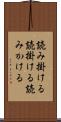 読み掛ける
読掛ける読
みかける